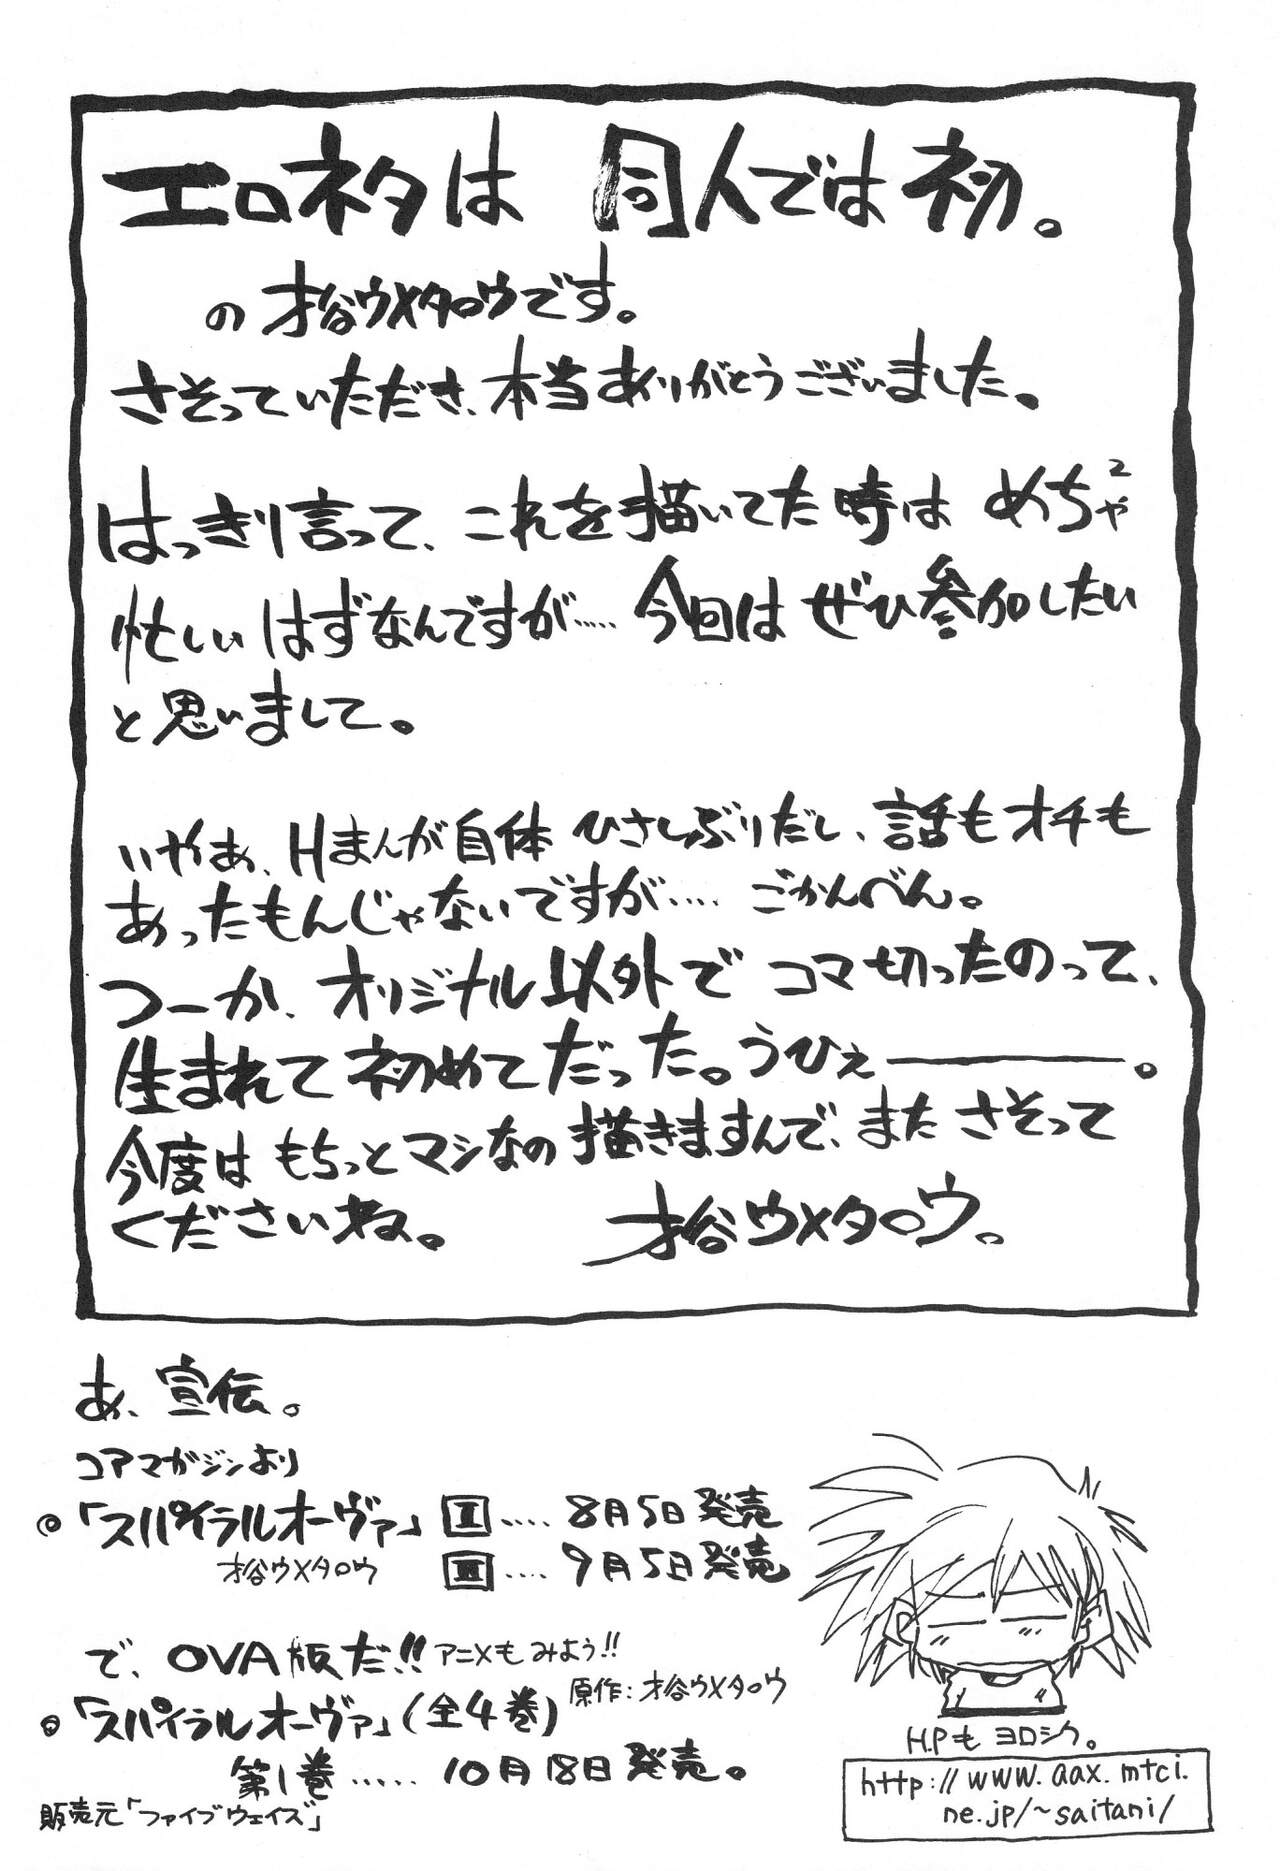 エロネタは 同人では初。
の 才谷ウメタロウです。
さそっていただき、本当ありがとうございました。
はっきり言って、これを描いてた時は めちゃ2
忙しい はずなんですが…… 今回は ぜひ参加したい
と思いまして。
いやぁ、Hまんが自体 ひさしぶりだし、話もオチも
あったもんじゃないですが…… ごかんべん。
つーか、オリジナル以外で コマ切ったのって、
生まれて初めてだった。うひぇ―――。
今度は もちっとマシなの描きますんで、また さそって
くださいね。 才谷ウメタロウ。
あ、宣伝。
コアマガジンより
◎「スパイラルオーヴァ」 I …… 8月5日発売
才谷ウメタロウ II …… 9月5日発売
で、OVA版だ!! アニメも みよう!!
◎「スパイラルオーヴァ」(全4巻) 原作:才谷ウメタロウ
第1巻…… 10月18日発売。
販売元「ファイブウェイズ」
H.Pも ヨロシク。
http://www.aax.mtci.
ne.jp/~saitani/